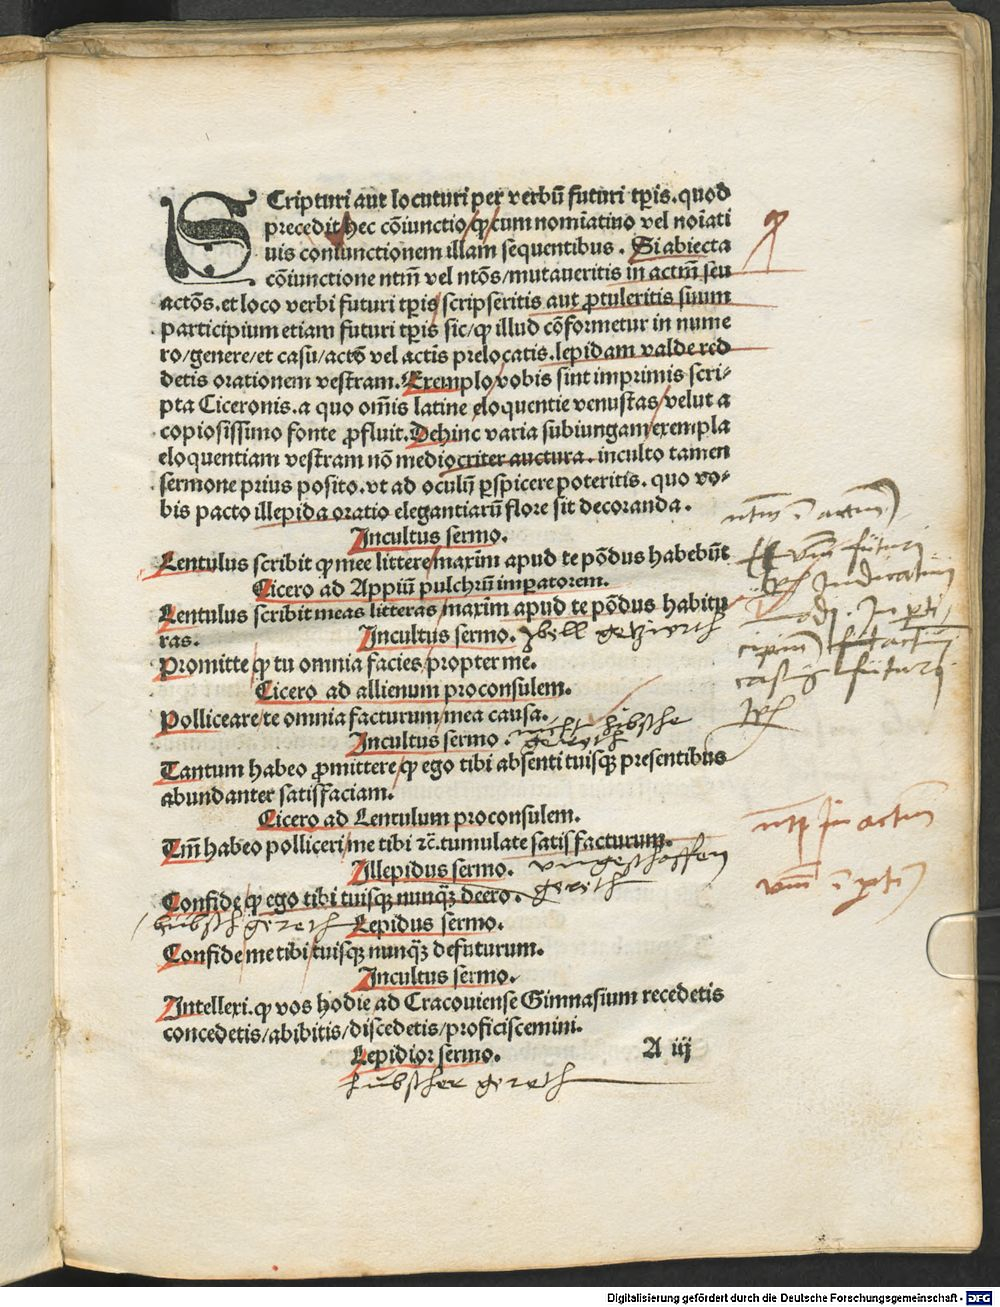 SCripturi aut locuturi per verbū futuri tp̄is. quod
precedit hec cōiunctio/ꝙ/cum nomīatiuo vel noīati
uis coniunctionem illam sequentibus. Si abiecta
cōiunctione ntm̄ vel ntōs/mutaueritis in actm̄ seu
actōs. et loco verbi futuri tp̄is scripseritis aut ꝓtuleritis suum
participium etiam futuri tp̄is sic/ꝙ illud cōformetur in nume
ro/genere/et casu/actō vel actis prelocatis. lepidam valde red
detis orationem vestram. Exemplo vobis sint imprimis scri⸗
pta Ciceronis. a quo om̄is latine eloquentie venustas/velut a
copiosissimo fonte ꝓfluit. Dehinc varia subiungam exempla
eloquentiam vestram nō mediocriter auctura. inculto tamen
sermone prius posito. vt ad oculū ꝑspicere poteritis. quo vo⸗
bis pacto illepida oratio elegantiarū flore sit decoranda.
Incultus sermo.
Lentulus scribit ꝙ mee littere maxīm apud te pōdus habebūt
Cicero ad Appiū pulchrū imperatorem.
Lentulus scribit meas litteras/maxīm apud te pōdus habitu
ras. Incultus sermo.
Promitte/ꝙ tu omnia facies/propter me.
Cicero ad allienum proconsulem.
Polliceare/te omnia facturum/mea causa.
Incultus sermo. nicht hibsche
gereth
Tantum habeo ꝓmittere/ꝙ ego tibi absenti tuisqꝫ presentibus
abundanter satisfaciam.
Cicero ad Lentulum proconsulem.
Tm̄ habeo polliceri/me tibi ⁊c̄. tumulate satis facturum.
Illepidus sermo. vngeschaffen
gereth
Confide/ꝙ ego tibi tuisqꝫ nunqꝫ̄ deero.
hubsch gereth Lepidus sermo.
Confide me tibi/tuisqꝫ nunqꝫ̄ defuturum.
Incultus sermo.
Intellexi. ꝙ vos hodie ad Cracouiense Gimnasium recedetis
concedetis/abibitis/discedetis/proficiscemini.
Lepidior sermo. A iij
hubscher gereth
ntm̄ ī actm̄
futuri
Indicatiui
modi. In p̱ti
cipiū
futuri
ntp̄ In actm̄
vm̄ ī p̱ti
Digitalisierung gefördert durch die Deutsche Forschungsgemeinschaft - DFG